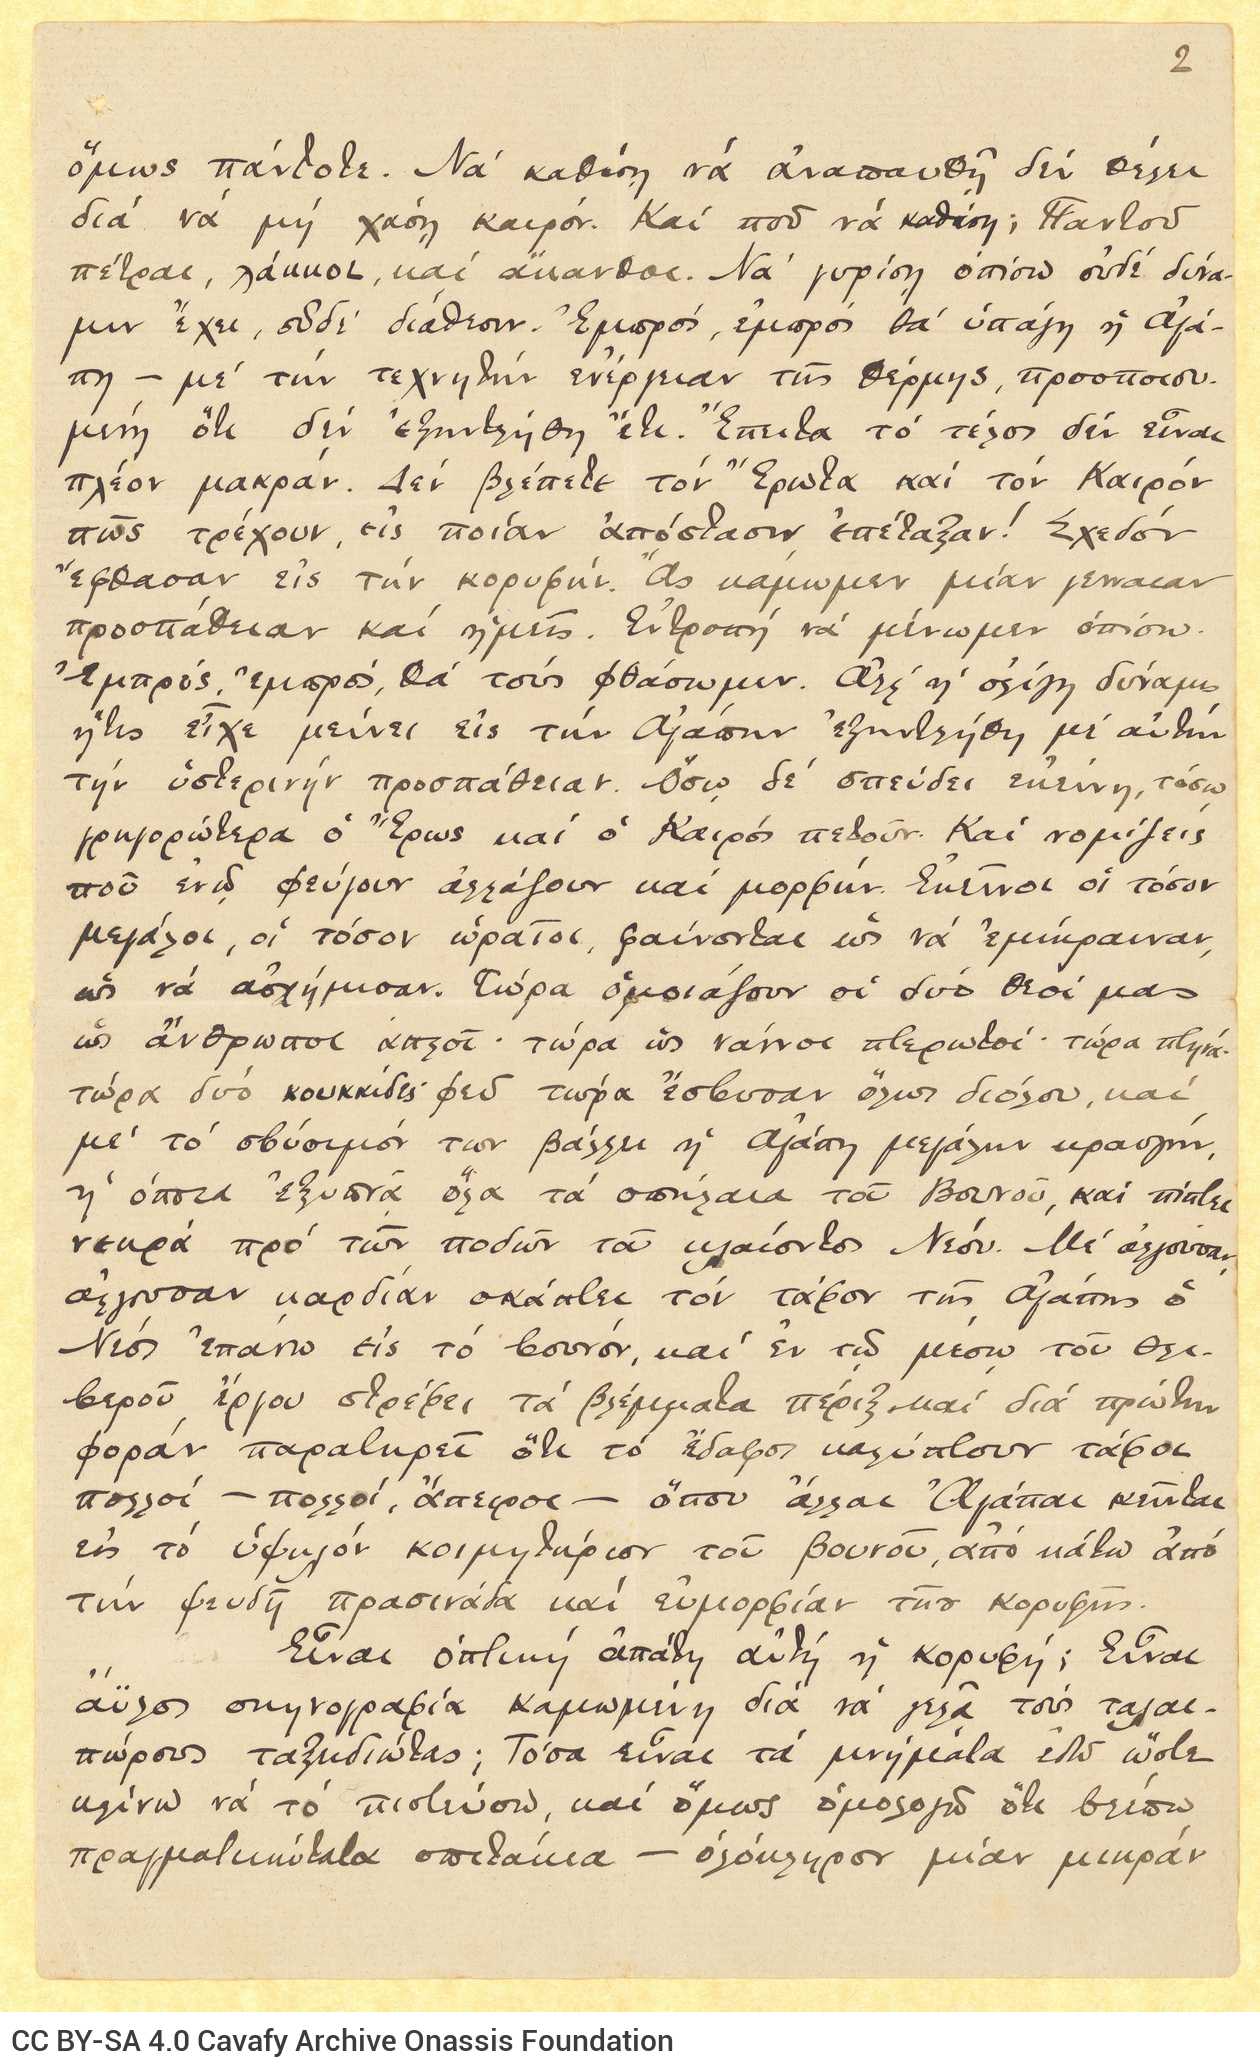 2
ὅμως πάντοτε. Νά καθίσῃ νά ἀναπαυθῇ δέν θέλει
διά νά μή χάσῃ καιρόν. Καί ποῦ νά καθίσῃ; Παντοῦ
πέτραι, λάκκοι, καί ἄκανθαι. Νά γυρίσῃ ὀπίσω οὐδέ δύνα-
μιν ἔχει, οὐδέ διάθεσιν. Ἐμπρός, ἐμπρός θά ὑπάγῃ ἡ Ἀγά-
πη — μέ τήν τεχνητήν ἐνέργειαν τῆς θέρμης, προσποιου-
μένη ὅτι δέν ἐξηντλήθη ἔτι. Ἔπειτα τό τέλος δέν εἶναι
πλέον μακράν. Δέν βλέπετε τόν Ἔρωτα καί τόν Καιρόν
πῶς τρέχουν, εἰς ποίαν ἀπόστασιν ἐπέταξαν! Σχεδόν
ἔφθασαν εἰς τήν κορυφήν. Ἄς κάμωμεν μίαν γενναίαν
προσπάθειαν καί ἡμεῖς. Ἐντροπή νά μένωμεν ὀπίσω.
Ἐμπρός, ἐμπρός, θά τούς φθάσωμεν. Ἀλλ' ἡ ὀλίγη δύναμις
ἥτις εἶχε μείνει εἰς τήν Ἀγάπην ἐξηντλήθη μέ αὐτήν
τήν ὑστερινήν προσπάθειαν. Ὅσῳ δέ σπεύδει ἐκείνη, τόσῳ
γρηγορώτερα ὁ Ἔρως καί ὁ Καιρός πετοῦν. Καί νομίζεις
ποῦ ἐνῷ φεύγουν ἀλλάζουν καί μορφήν. Ἐκεῖνοι οἱ τόσον
μεγάλοι, οἱ τόσον ὡραῖοι, φαίνονται ὡς νά ἐμίκραιναν,
ὡς νά ἀσχήμισαν. Τώρα ὁμοιάζουν οἱ δυό θεοί μας
ὡς ἄνθρωποι ἁπλοῖ· τώρα ὡς νάννοι πτερωτοί· τώρα πτηνά·
τώρα δυό κουκκίδες· φεῦ τώρα ἔσβυσαν ὅλως διόλου, καί
μέ τό σβύσιμόν των βάλλει ἡ Ἀγάπη μεγάλην κραυγήν,
ἡ ὁποία ἐξυπνᾷ ὅλα τά σπήλαια τοῦ Βουνοῦ, καί πίπτει
νεκρά πρό τῶν ποδῶν τοῦ κλαίοντος Νέου. Μέ ἀλγοῦσαν,
ἀλγοῦσαν καρδίαν σκάπτει τόν τάφον τῆς Ἀγάπης ὁ
Νέος ἐπάνω εἰς τό βουνόν, καί ἐν τῷ μέσῳ τοῦ θλι-
βεροῦ ἔργου στρέφει τά βλέμματα πέριξ καί διά πρώτην
φοράν παρατηρεῖ ὅτι τό ἔδαφος καλύπτουν τάφοι
πολλοί — πολλοί, ἄπειροι — ὅπου ἄλλαι Ἀγάπαι κεῖνται
εἰς τό ὑψηλόν κοιμητήριον τοῦ βουνοῦ, ἀπό κάτω ἀπό
τήν ψευδῆ πρασινάδα καί εὐμορφίαν τῆς κορυφῆς.
Εἶναι ὀπτική ἀπάτη αὐτή ἡ κορυφή; Εἶναι
ἄϋλος σκηνογραφία καμωμένη διά νά γελᾷ τούς ταλαι-
πώρους ταξιδιώτας; Τόσα εἶναι τά μνήματα ἐδῶ ὥστε
κλίνω νά τό πιστεύσω, καί ὅμως ὁμολογῶ ὅτι βλέπω
πραγματικώτατα σπιτάκια — ὁλόκληρον μίαν μικράν
CC BY-SA 4.0 Cavafy Archive Onassis Foundation